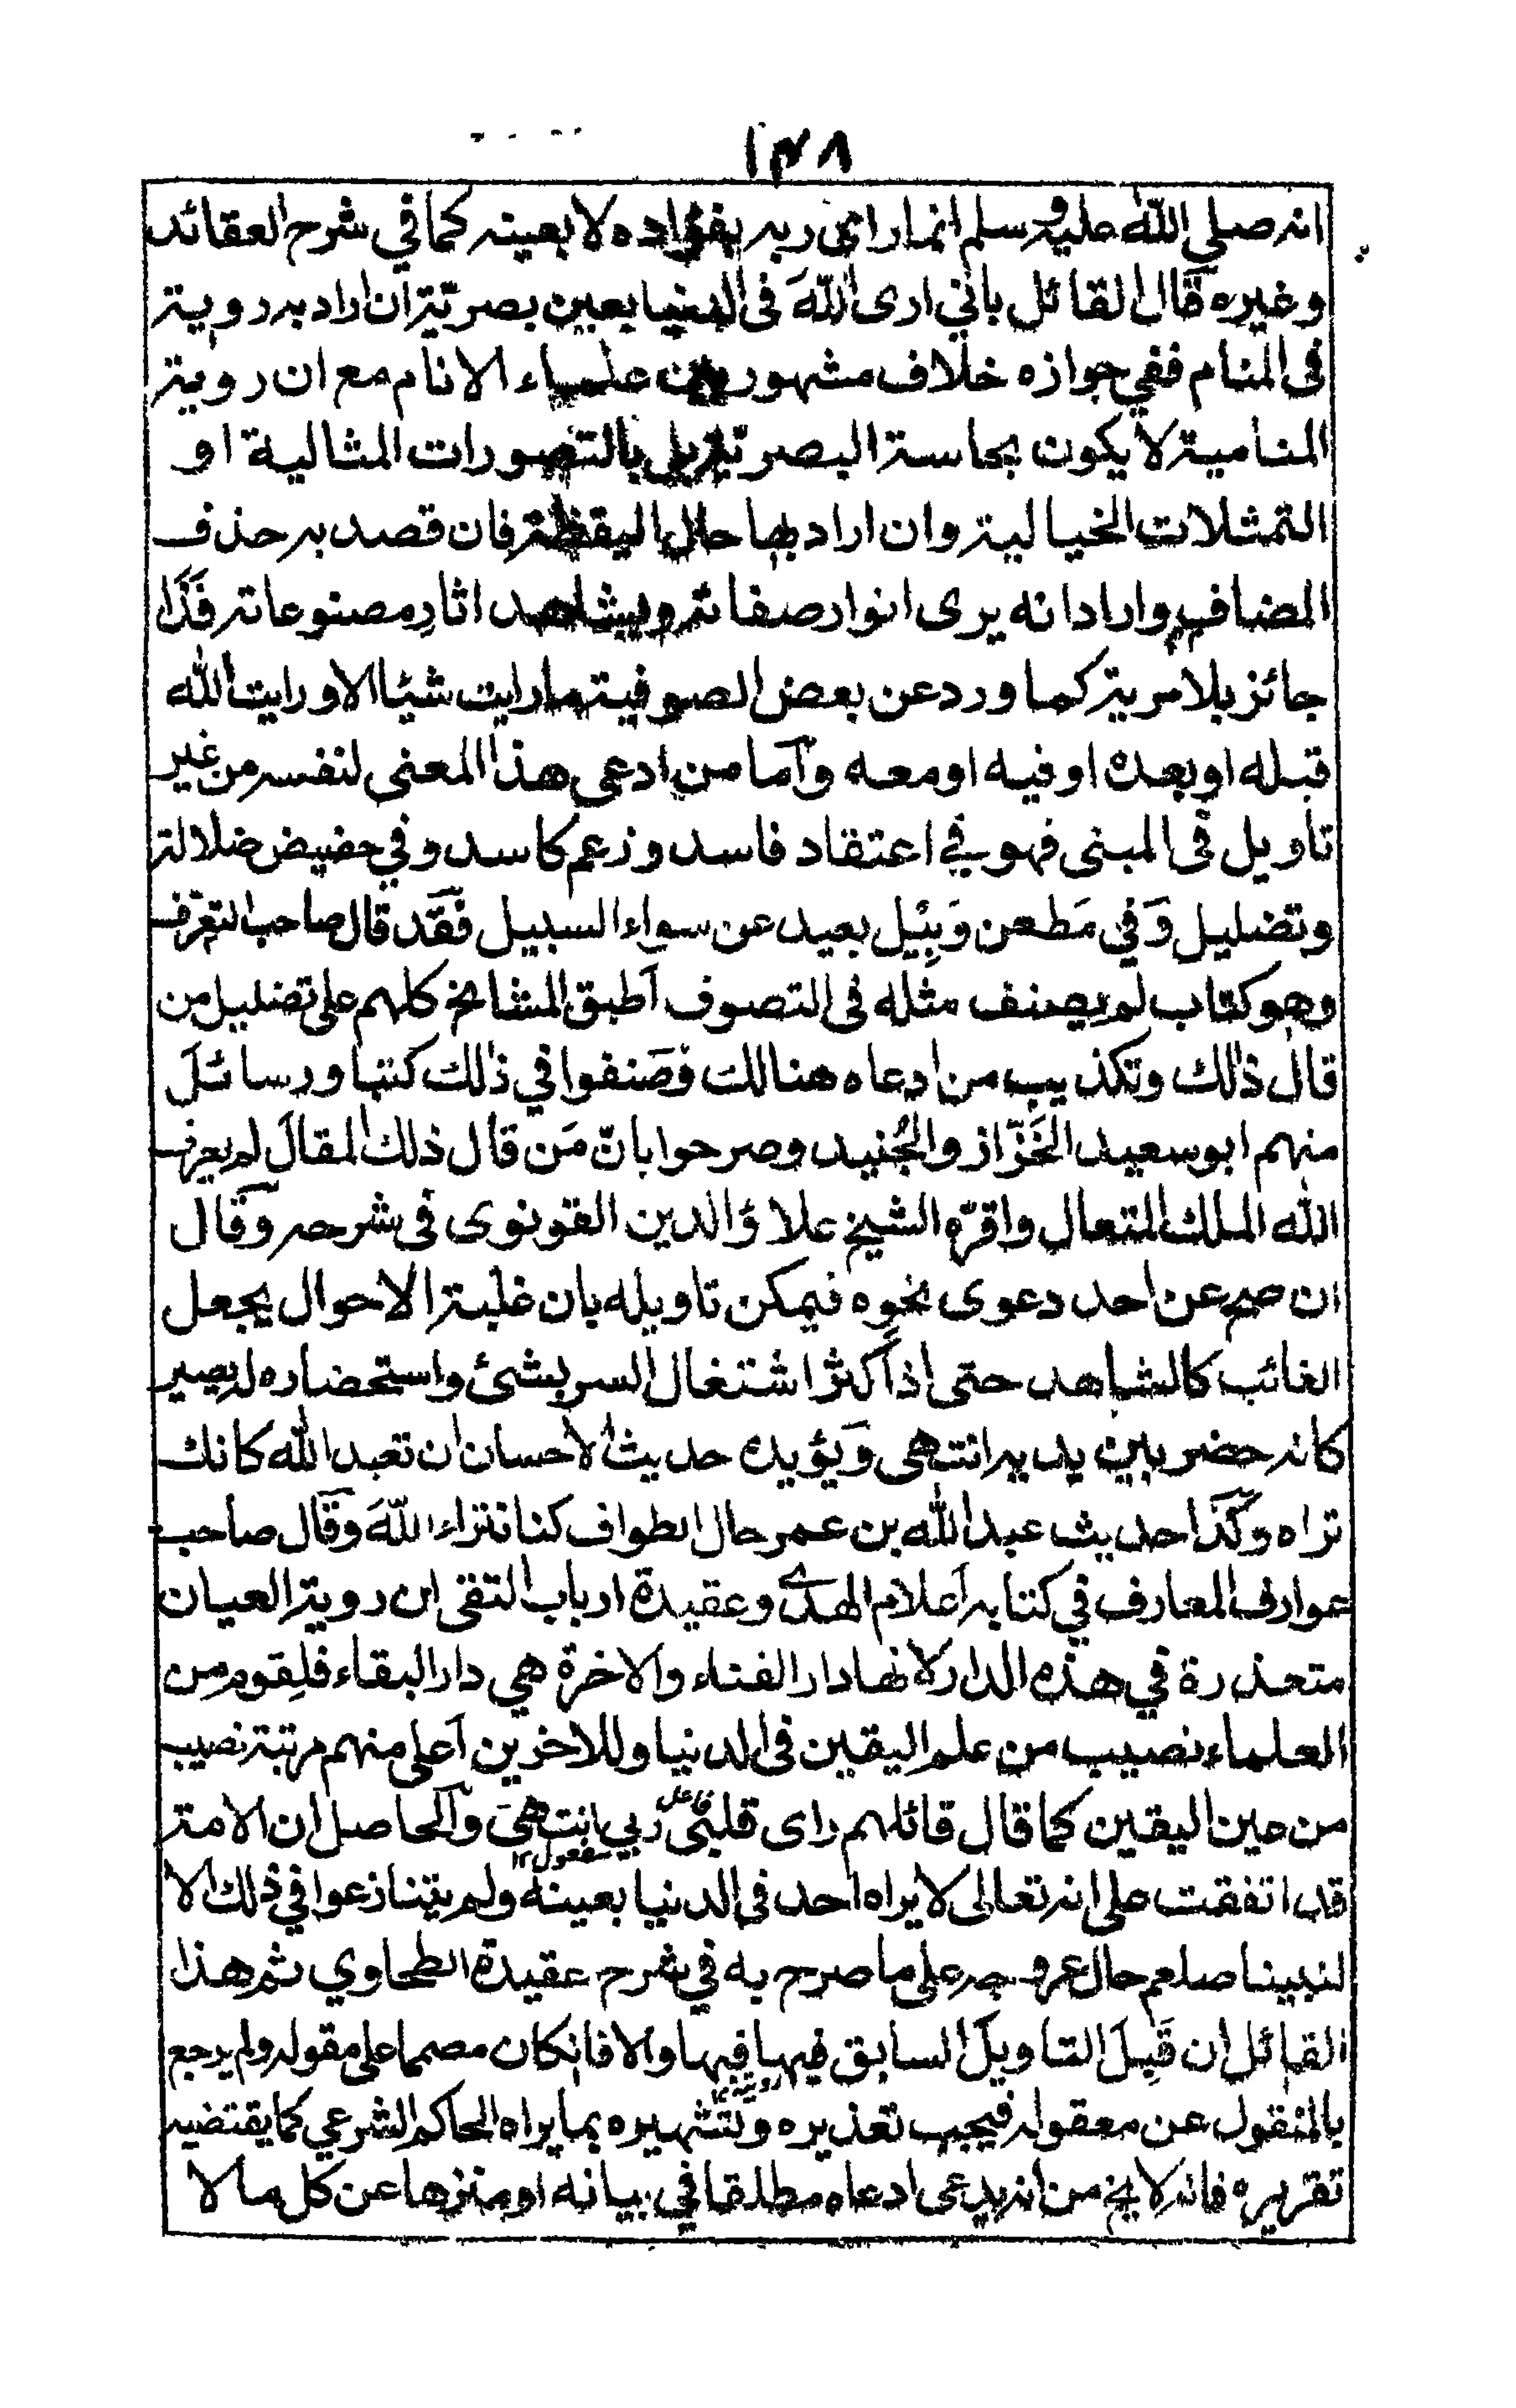 ١٣٨
انه صلي الله عليه وسلم انما راى ربه بفؤاده لا بعينه كما في شرح العقائد
وغيره قال القائل باني ارى الله فى الدنيا بعين بصرية ان اراد به روية
فى المنام ففي جوازه خلاف مشهور بين علماء الانام مع ان روية
المنامية لا يكون بحاسة البصرية بل بالتصورات المثالية او
التمثلات الخيالية وان اراد بها حال اليقظة فان قصد به حذف
المضاف واراد انه يرى انوار صفاته ويشاهد اثار مصنوعاته فذا
جائز بلا مرية كما ورد عن بعض الصوفية ما رايت شيئا الا ورايت الله
قبله او بعده او فيه او معه واما من ادعى هذا المعنى لنفسه من غير
تاويل فى المبنى فهو في اعتقاد فاسد وزعم كاسد وفي حضيض ضلالة
وتضليل وَفي مَطعن وَبِيْل بعيد عن سواء السبيل فقد قال صاحب التعرف
وهو كتاب لم يصنف مثله فى التصوف اطبق المشائخ كلهم على تضليل من
قال ذلك وتكذيب من ادعاه هنالك وصَنفوا في ذلك كتبا ورسائلَ
منهم ابو سعيد الخَرّاز والجُنيد وصرحوا بانّ مَن قال ذلك المقالَ لم يعرف
الله الملك المتعال واقرّه الشيخ علاؤ الدين القونوى فى شرحه وقال
ان صح عن احد دعوى نحوه فيمكن تاويله بان غلبة الاحوال يجعل
الغائب كالشاهد حتى اذا كثر اشتغال السر بشئ واستحضاره له يصير
كانه حضر بين يديه انتهى وَيؤيده حديث الاحسان ان تعبد الله كانك
تراه وكذا حديث عبد الله بن عمر حال الطواف كنا نتراء اللهَ وقال صاحب
عوارف المعارف في كتابه اعلام الهدى وعقيدة ارباب التقى ان روية العيان
متعذرة في هذه الدار لانها دار الفناء والاخرة هي دار البقاء فلِقوم من
العلماء نصيب من علم اليقين فى الدنيا وللاخرين اعلى منهم مرتبة نصيب
من عين اليقين كما قال قائلهم راى قلبى ربي انتهى والحاصل ان الامة
فاعل
مفعول ١٢
قد اتفقت على انه تعالى لا يراه احد فى الدنيا بعينه ولم يتنازعوا في ذلك الا
لنبينا صلعم حال عروجه على ما صرح به في شرح عقيدة الطحاوي ثم هذا
القائل ان قَبِلَ التاويلَ السابق فيها فبها والا فانكان مصمما على مقوله ولم يرجع
بالمنقول عن معقوله فيجب تعذيره وتشهيره بما يراه الحاكم الشرعي كما يقتضيه
تقريره فانه لا يخ من انه يدعى ادعاه مطلقا في بيانه او منزها عن كل ما لا